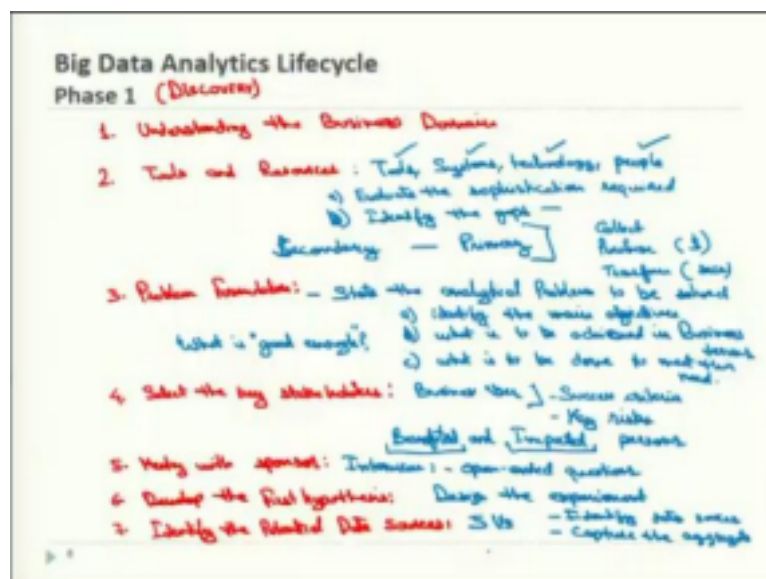 Big Data Analytics Lifecycle
Phase 1 (Discovery)
1. Understanding the Business Domain
2. Tools and Resources: Tools, Systems, technology, people
a) Evaluate the sophistication required
b) Identify the gaps —
Secondary — Primary ] Collect
Purchase ($)
Transform
3. Problem Formulation: - State the analytical Problem to be solved
a) identify the main objectives
What is "good enough"? b) what is to be achieved in Business terms
c) what is to be done to meet the need.
4. Select the key stakeholders: Business User ] - Success criteria
- Key risks
Benefited and Impacted persons
5. with sponsor: Interview: - open-ended questions
6 Develop the First hypothesis: Design the experiment
7. Identify the Potential Data Sources: 5 Vs - Identify data source
- Capture the aggregate